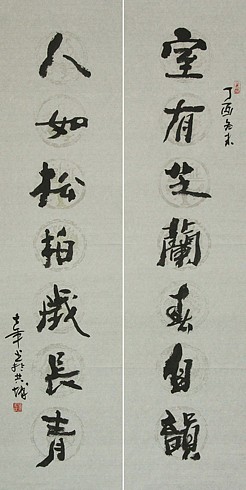 丁酉冬末
室有芝蘭春自韻
人如松柏歲長青